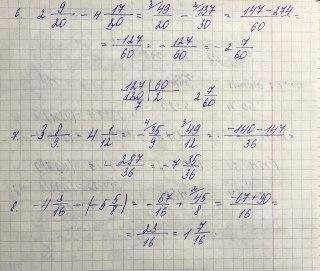 6. 2 9/20 - 4 17/30 = ³⁾49/20 - ²⁾137/30 = 147-274/60 =
= -127/60 = - 127/60 = -2 7/60
127 | 60
120 | 2 2 7/60
7
7. -3 8/9 - 4 1/12 = - ⁴⁾35/9 - ³⁾49/12 = -140-147/36 =
= - 287/36 = -7 35/36
8. -4 3/16 - (-5 5/8) = - 67/16 + ²⁾45/8 = -67+90/16 =
= 23/16 = 1 7/16.